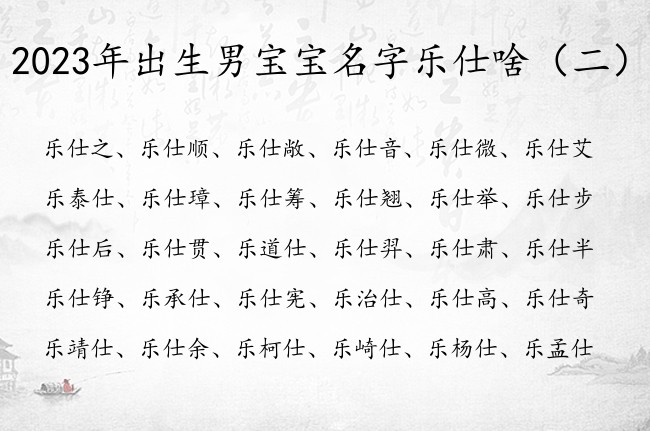 2023年出生男宝宝名字乐仕啥（二）
乐仕之、乐仕顺、乐仕敞、乐仕音、乐仕微、乐仕艾
乐泰仕、乐仕璋、乐仕筹、乐仕翘、乐仕举、乐仕步
乐仕后、乐仕贯、乐道仕、乐仕羿、乐仕肃、乐仕半
乐仕铮、乐承仕、乐仕宪、乐治仕、乐仕高、乐仕奇
乐靖仕、乐仕余、乐柯仕、乐崎仕、乐杨仕、乐孟仕